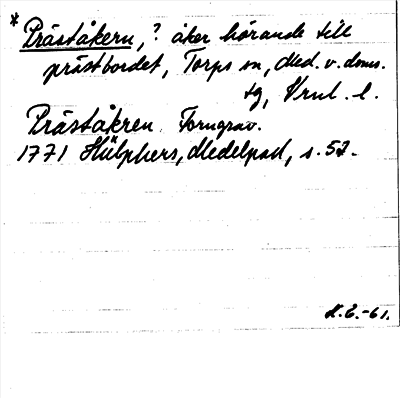 * Präståkern, ? åker hörande till
prästbordet, Torps sn, Med. v. doms.
sg, Vrnl. l.
Präståkren. Forngrav.
1771 Hülphers, Medelpad, s. 57.
K.E.-61.